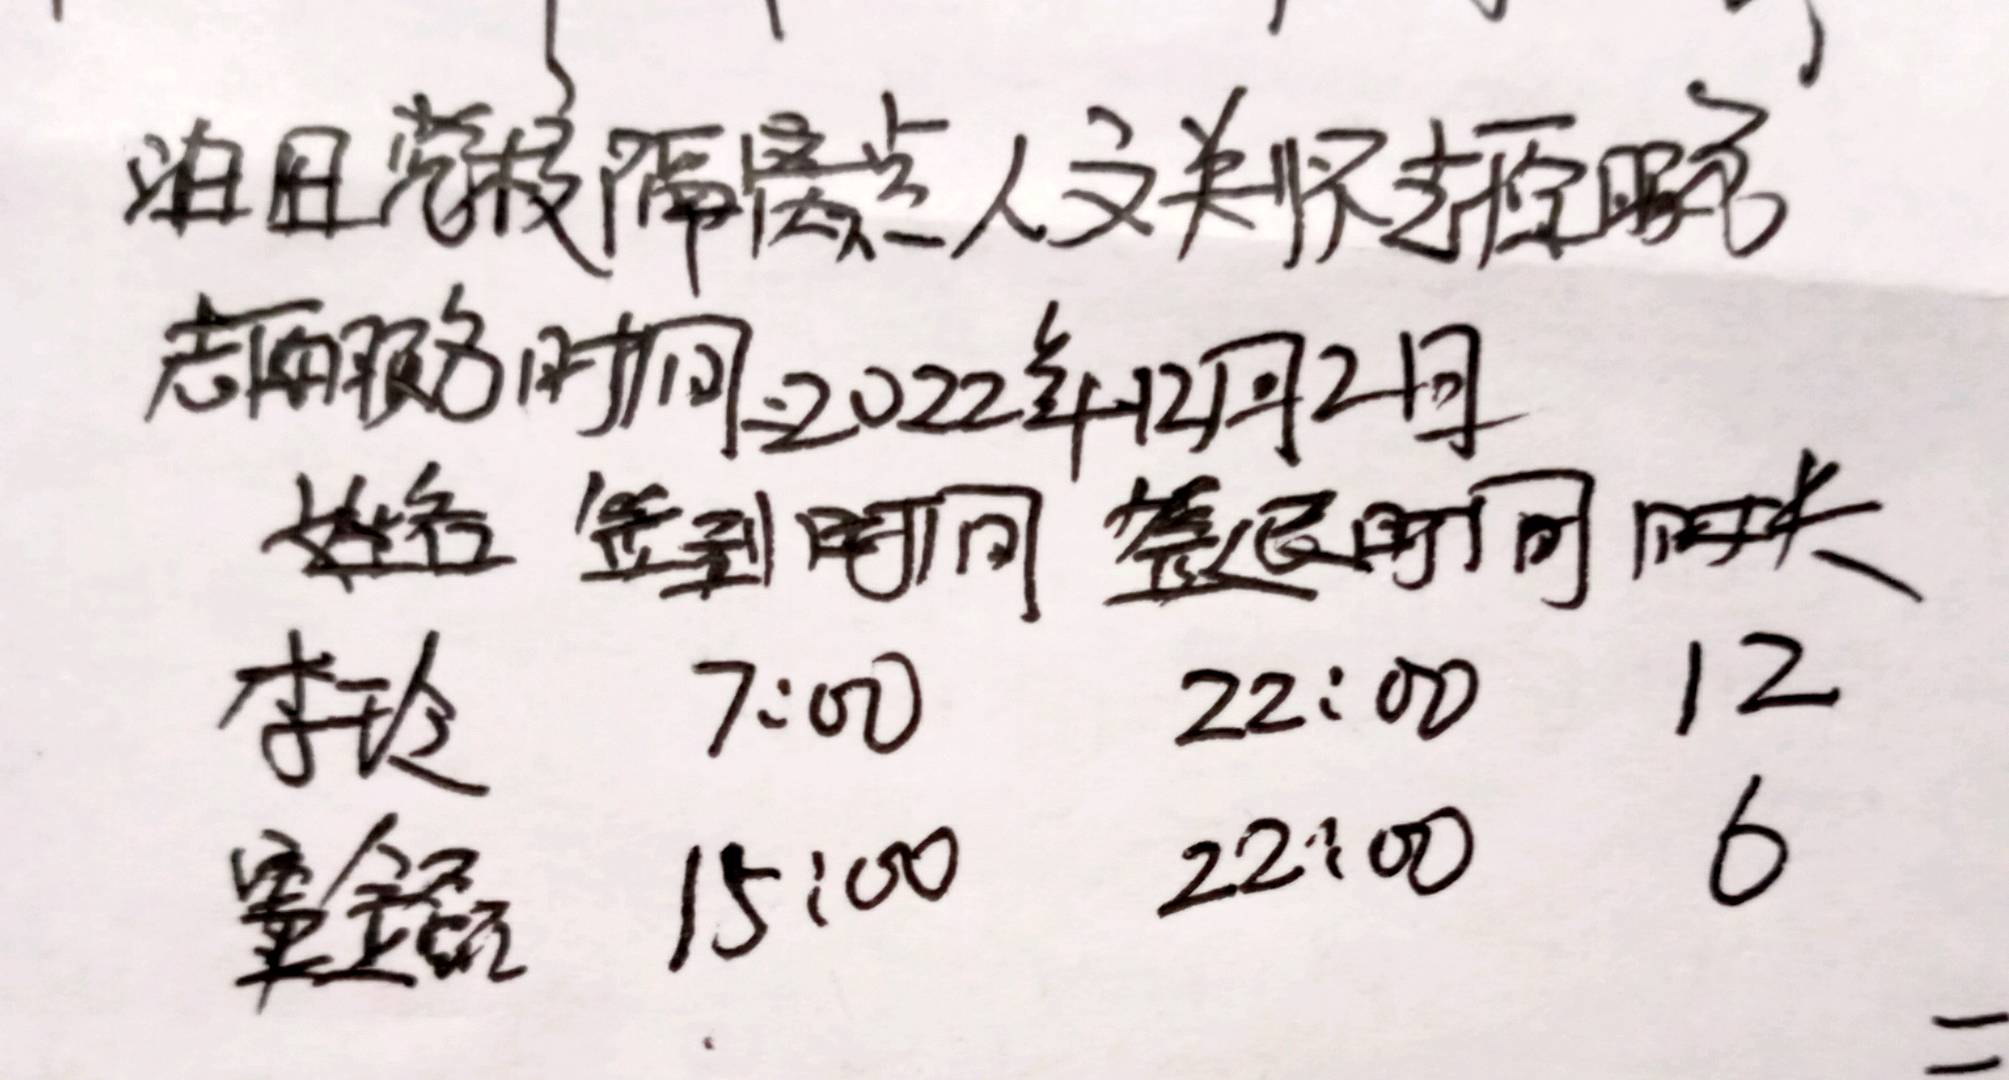 党校隔离点人文关怀志愿服务
志愿服务时间:2022年12月2日
姓名 签到时间 签退时间 时长
李玲 7:00 22:00 12
15:00 22:00 6